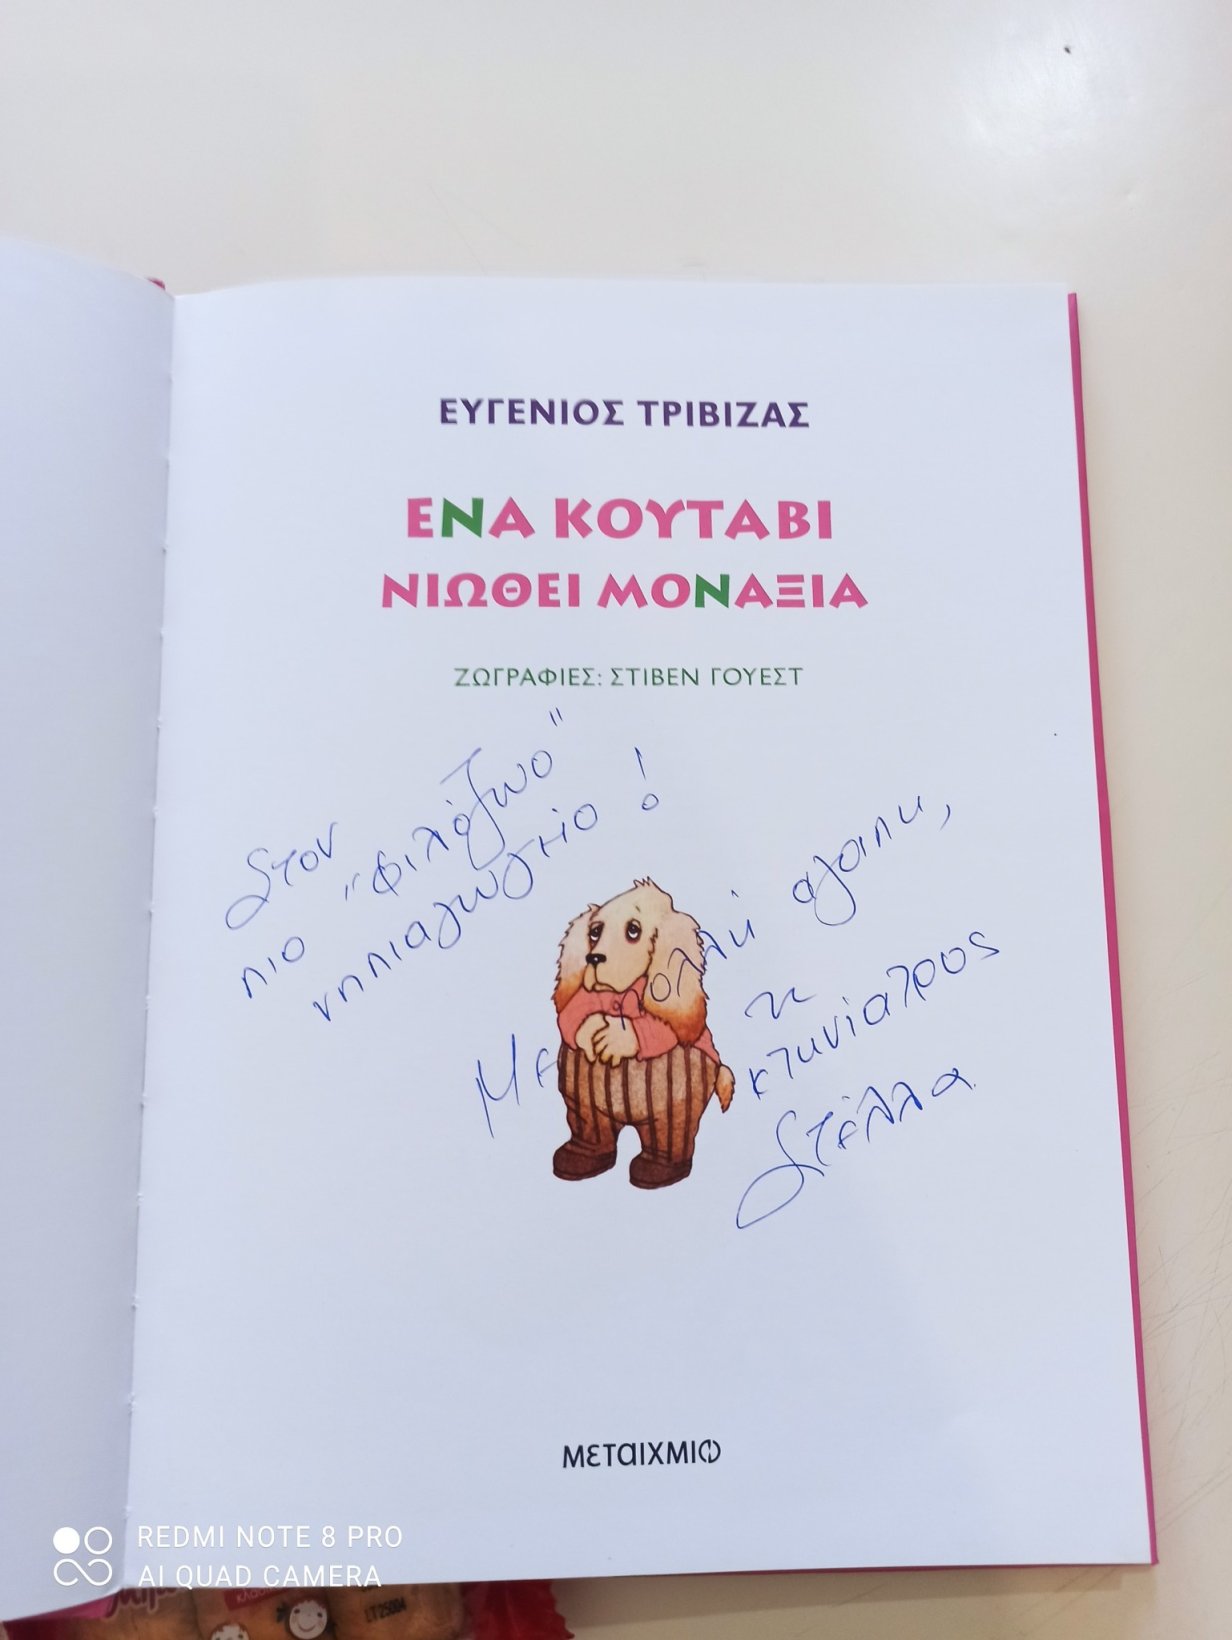 ΕΥΓΕΝΙΟΣ ΤΡΙΒΙΖΑΣ
ΕΝΑ ΚΟΥΤΑΒΙ
ΝΙΩΘΕΙ ΜΟΝΑΞΙΑ
ΖΩΓΡΑΦΙΕΣ: ΣΤΙΒΕΝ ΓΟΥΕΣΤ
Στον
πιο "φιλόζωο"
νηπιαγωγείο!
Με πολλή αγάπη,
η
κτηνίατρος
Στέλλα
ΜΕΤΑΙΧΜΙΟ
REDMI NOTE 8 PRO
AI QUAD CAMERA
LT 25004